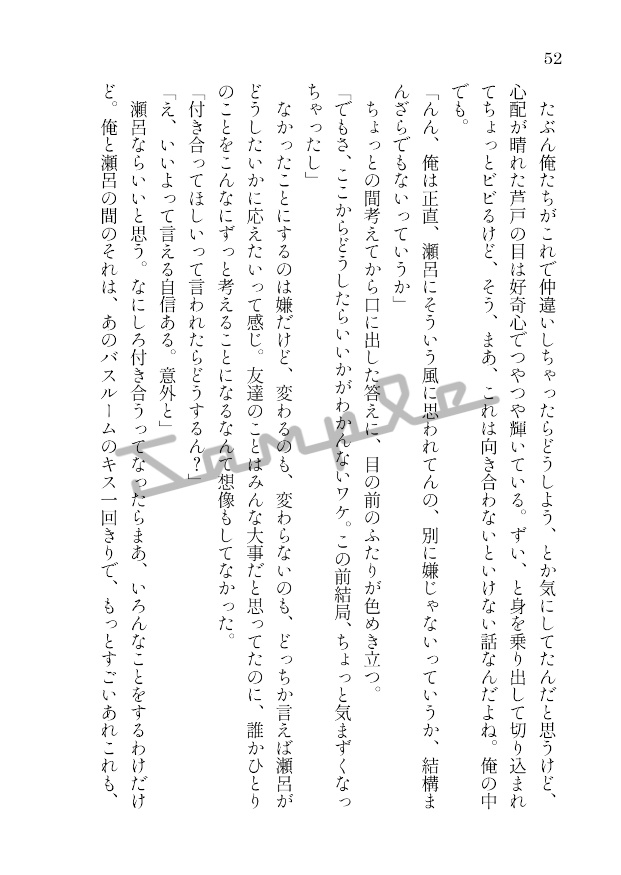 52
たぶん俺たちがこれで仲違いしちゃったらどうしよう、とか気にしてたんだと思うけど、
心配が晴れた芦戸の目は好奇心でつやつや輝いている。ずい、と身を乗り出して切り込まれ
てちょっとビビるけど、そう、まあ、これは向き合わないといけない話なんだよね。俺の中
でも。
「んん、俺は正直、瀬呂にそういう風に思われてんの、別に嫌じゃないっていうか、結構ま
んざらでもないっていうか」
ちょっとの間考えてから口に出した答えに、目の前のふたりが色めき立つ。
「でもさ、ここからどうしたらいいかがわかんないワケ。この前結局、ちょっと気まずくなっ
ちゃったし」
なかったことにするのは嫌だけど、変わるのも、変わらないのも、どっちか言えば瀬呂が
どうしたいかに応えたいって感じ。友達のことはみんな大事だと思ってたのに、誰かひとり
のことをこんなにずっと考えることになるなんて想像もしてなかった。
「付き合ってほしいって言われたらどうするん？」
「え、いいよって言える自信ある。意外と」
瀬呂ならいいと思う。なにしろ付き合うってなったらまあ、いろんなことをするわけだけ
ど。俺と瀬呂の間のそれは、あのバスルームのキス一回きりで、もっとすごいあれこれも、
Sample